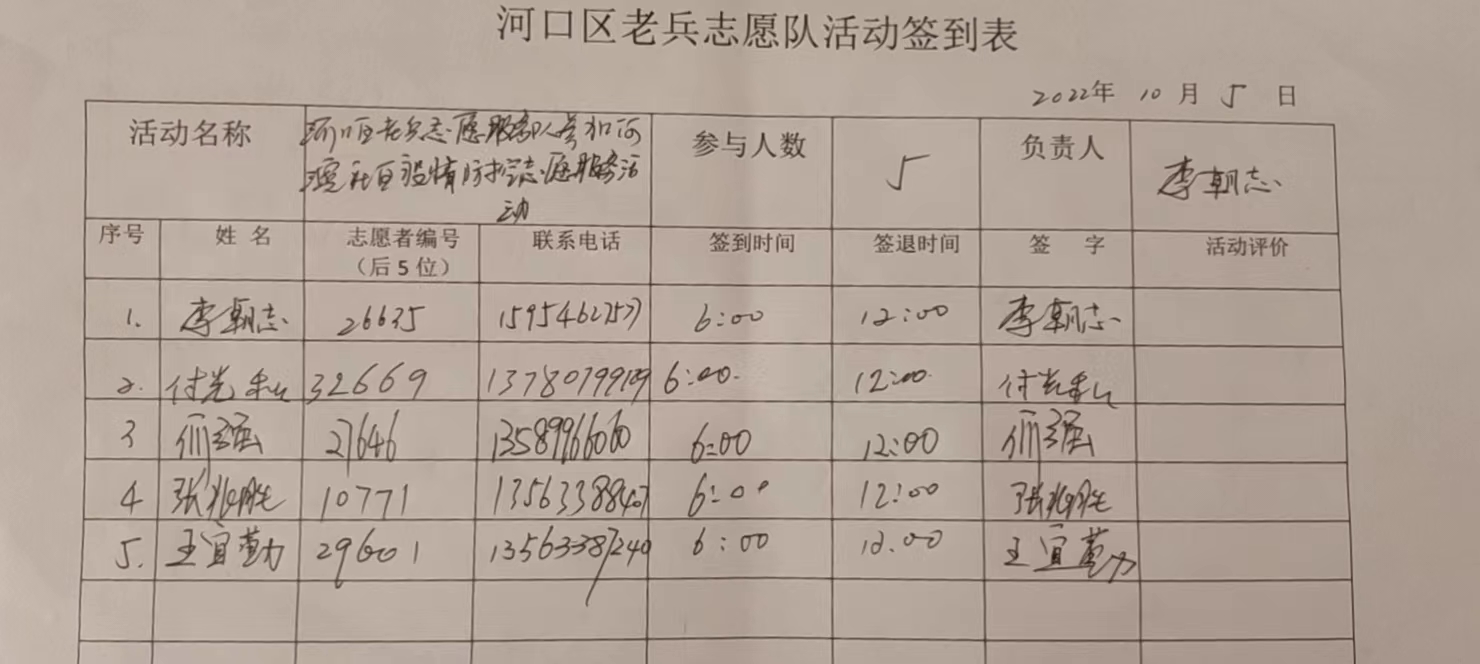 河口区老兵志愿队活动签到表
2022年 10 月 5 日
活动名称 河口区老兵志愿服务队参加河 参与人数 5 负责人 李朝志
社区疫情防控志愿服务活
动
序号 姓 名 志愿者编号 联系电话 签到时间 签退时间 签 字 活动评价
（后5位）
1. 李朝志 26635 6:00 12:00 李朝志
2. 付光 32669 6:00 12:00 付光
3 强 27646 13589966060 6:00 12:00 强
4 张兆胜 10771 13563388407 6:00 12:00 张兆胜
5. 王宜勤 29601 13563387240 6:00 12:00 王宜勤